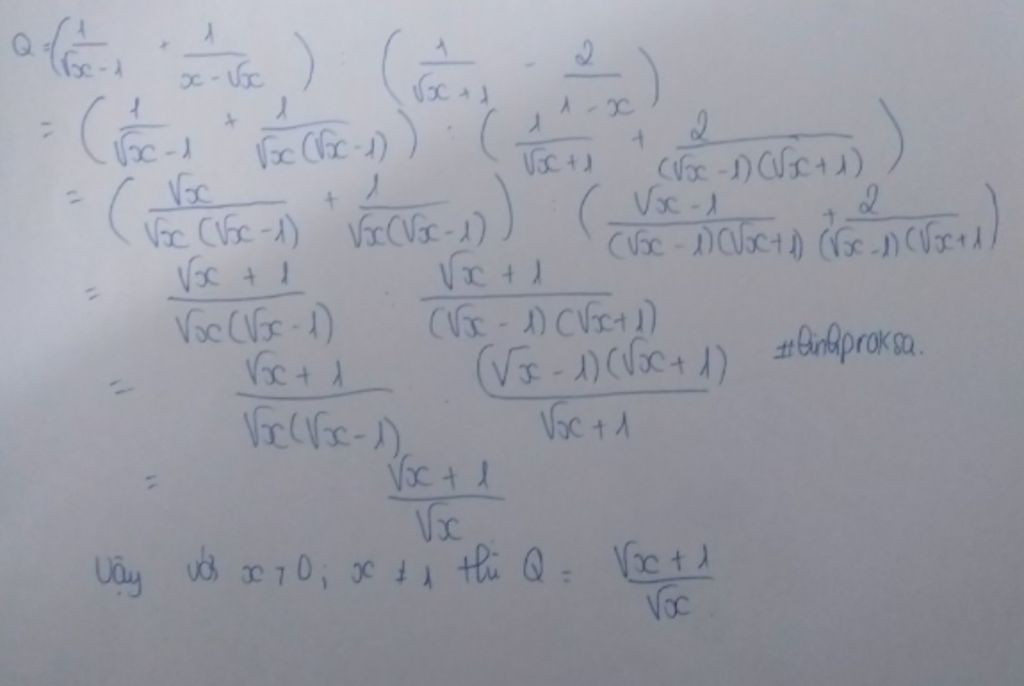 Q = (1/(√x - 1) + 1/(x - √x)) : (1/(√x + 1) - 2/(1 - x))
= (1/(√x - 1) + 1/(√x(√x - 1))) : (1/(√x + 1) + 2/((√x - 1)(√x + 1)))
= (√x/(√x(√x - 1)) + 1/(√x(√x - 1))) : ((√x - 1)/((√x - 1)(√x + 1)) + 2/((√x - 1)(√x + 1)))
= (√x + 1)/(√x(√x - 1)) : (√x + 1)/((√x - 1)(√x + 1))
= (√x + 1)/(√x(√x - 1)) . ((√x - 1)(√x + 1))/(√x + 1)
= (√x + 1)/√x
Vậy với x > 0; x ≠ 1 thì Q = (√x + 1)/√x